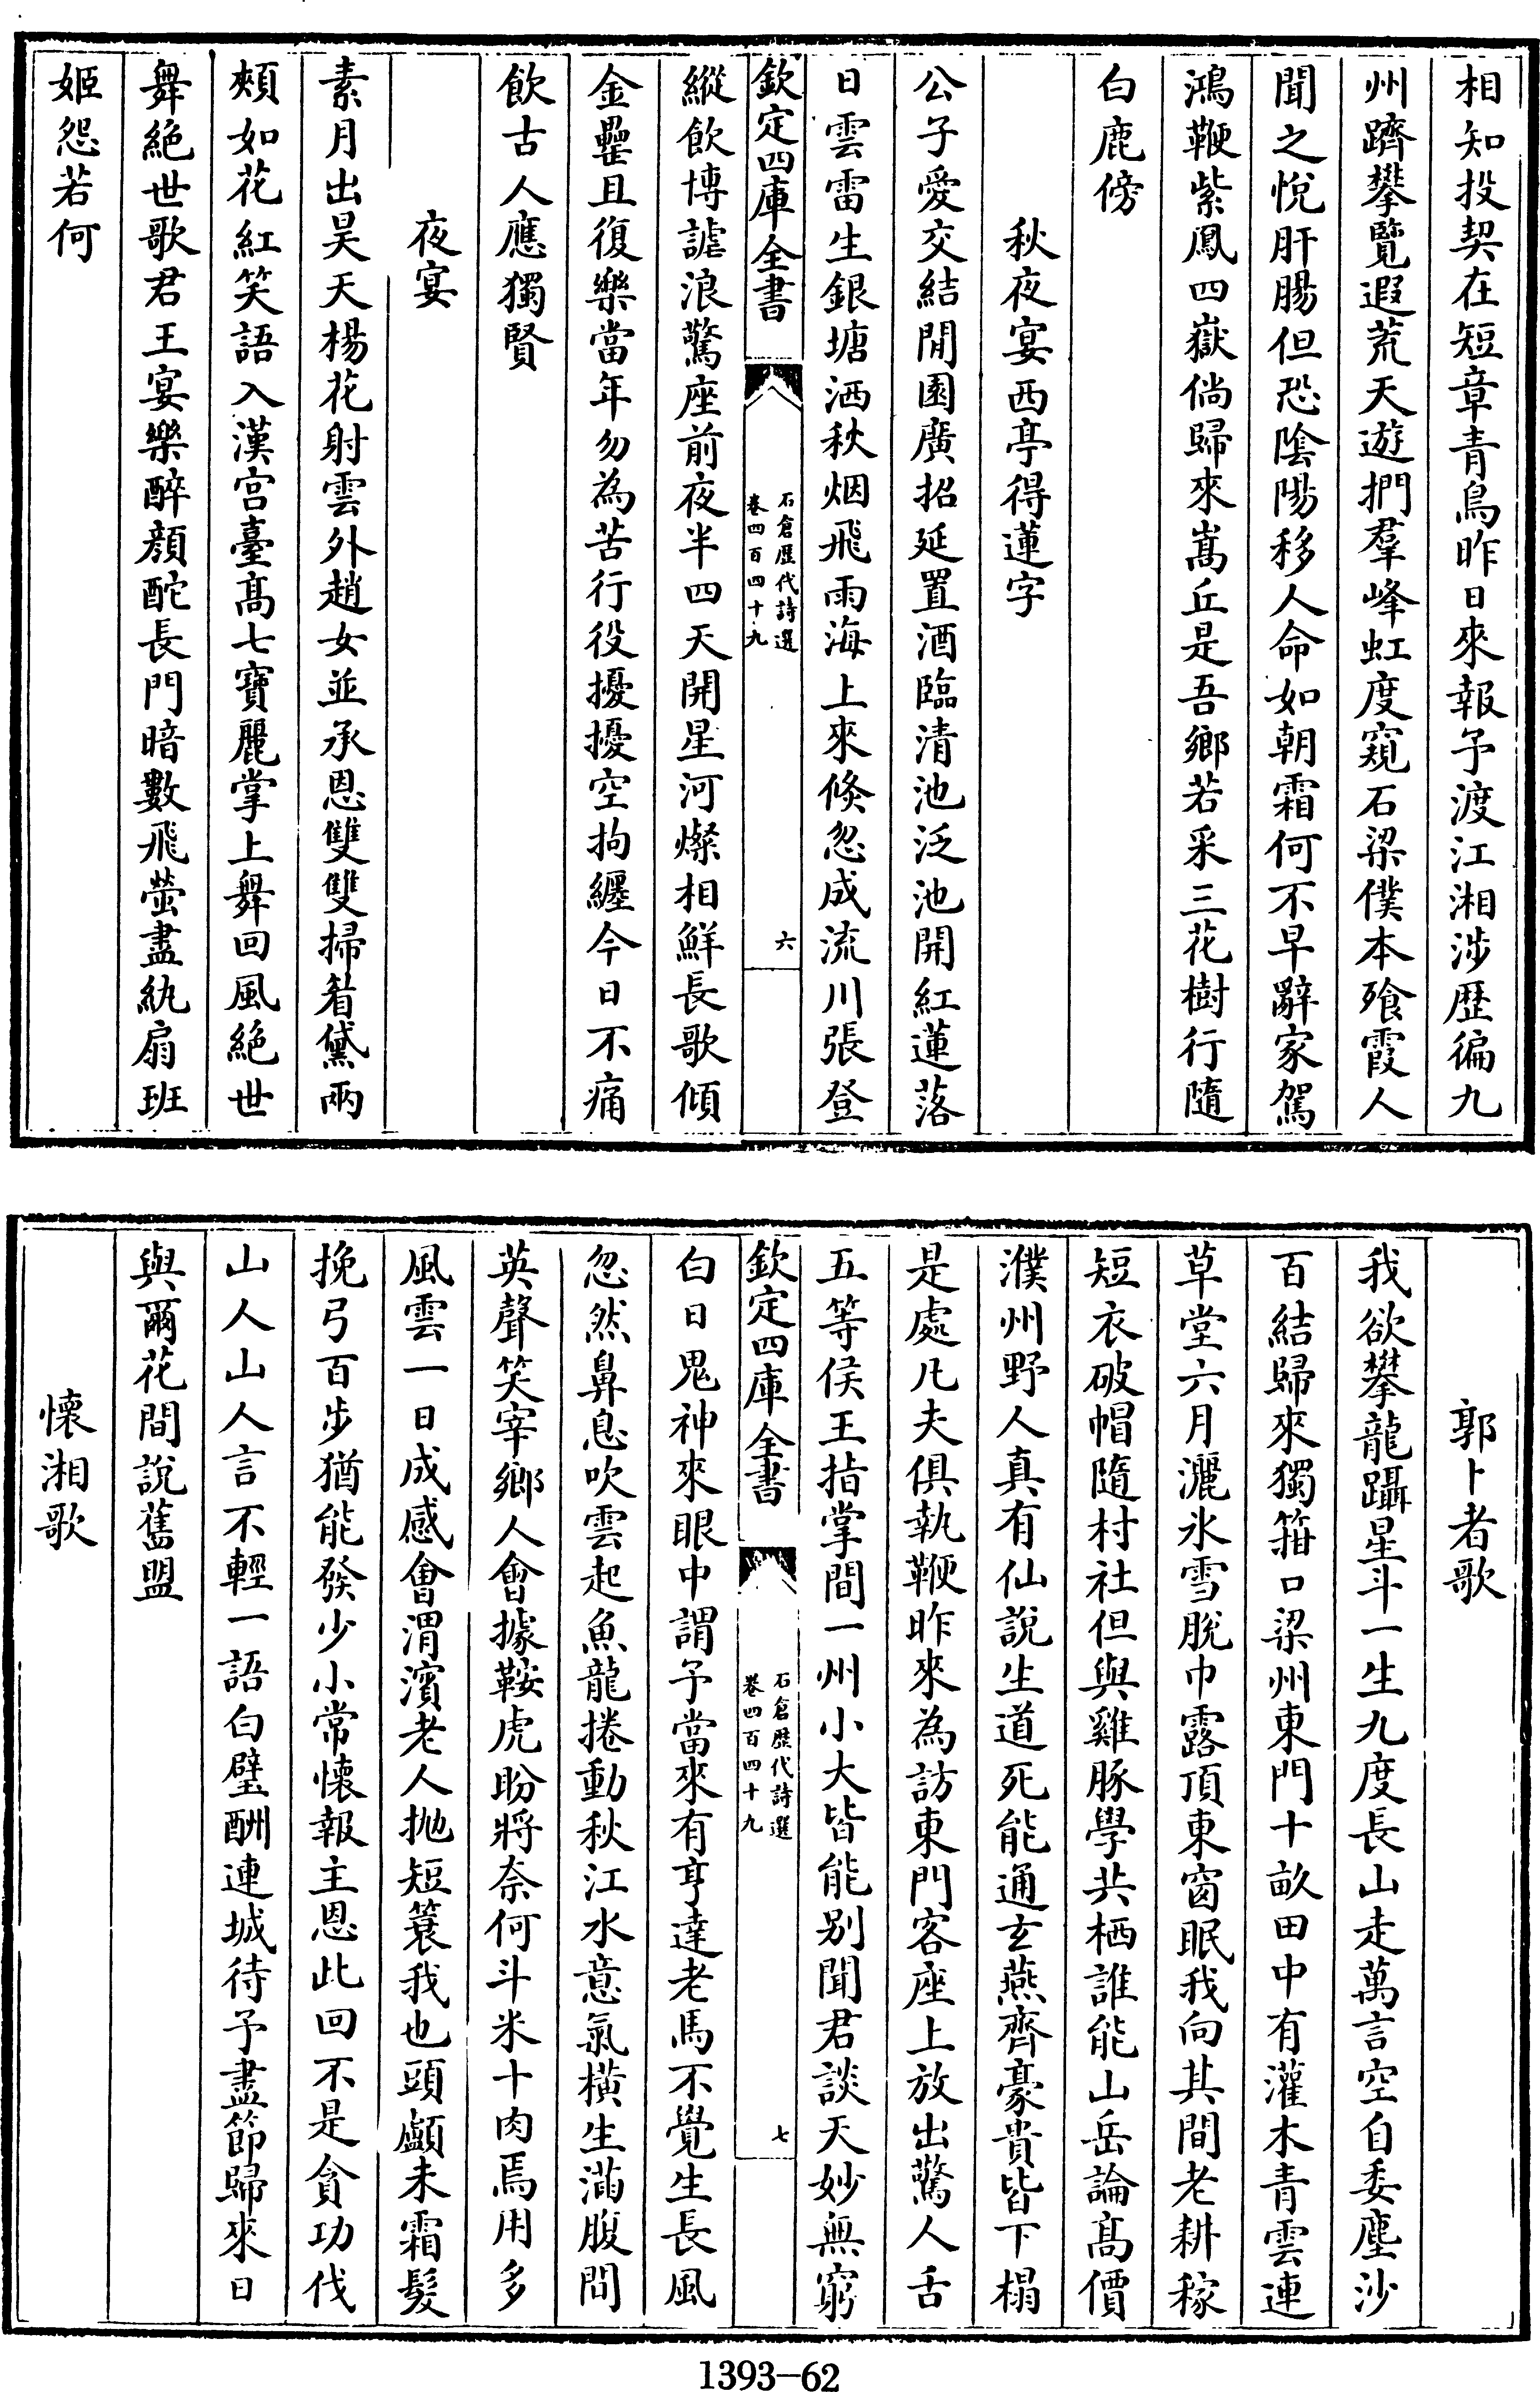 相知投契在短章青鳥昨日來報予渡江湘涉歴徧九
州躋攀覽遐荒天遊捫羣峰虹度窺石梁僕本飱霞人
聞之悅肝腸但恐陰陽移人命如朝霜何不早辭家駕
鴻鞭紫鳳四嶽倘歸來嵩丘是吾鄉若采三花樹行隨
白鹿傍
秋夜宴西亭得蓮字
公子愛交結開園廣招延置酒臨清池泛池開紅蓮落
日雲雷生銀塘洒秋烟飛雨海上來倐忽成流川張登
欽定四庫全書
石倉歷代詩選
卷四百四十九
六
縱飲博謔浪驚座前夜半四天開星河燦相鮮長歌傾
金罍且復樂當年勿為苦行役擾擾空拘纒今日不痛
飲古人應獨賢
夜宴
素月出昊天楊花射雲外趙女並承恩雙雙掃着黛兩
頰如花紅笑語入漢宫臺髙七寶麗掌上舞回風絶世
舞絶世歌君王宴樂醉顔酡長門暗數飛螢盡紈扇班
姬怨若何
郭卜者歌
我欲攀龍躡星斗一生九度長山走萬言空自委塵沙
百結歸來獨箝口梁州東門十畝田中有灌木青雲連
草堂六月灑氷雪脫巾露頂東窗眠我向其間老耕稼
短衣破帽隨村社但與雞豚學共栖誰能山岳論髙價
濮州野人真有仙說生道死能通玄燕齊豪貴皆下榻
是處凡夫俱執鞭昨來為訪東門客座上放出驚人舌
五等侯王指掌間一州小大皆能别聞君談天妙無窮
欽定四庫全書
石倉歷代詩選
卷四百四十九
七
白日鬼神來眼中謂予當來有亨達老馬不覺生長風
忽然鼻息吹雲起魚龍捲動秋江水意氣橫生滿腹間
英聲笑宰鄉人會據鞍虎盼將奈何斗米十肉焉用多
風雲一日成感會渭濱老人抛短簑我也頭顱未霜髮
挽弓百步猶能發少小常懷報主恩此回不是貪功伐
山人山人言不輕一語白璧酬連城待予盡節歸來日
與爾花間說舊盟
懷湘歌
1393—62